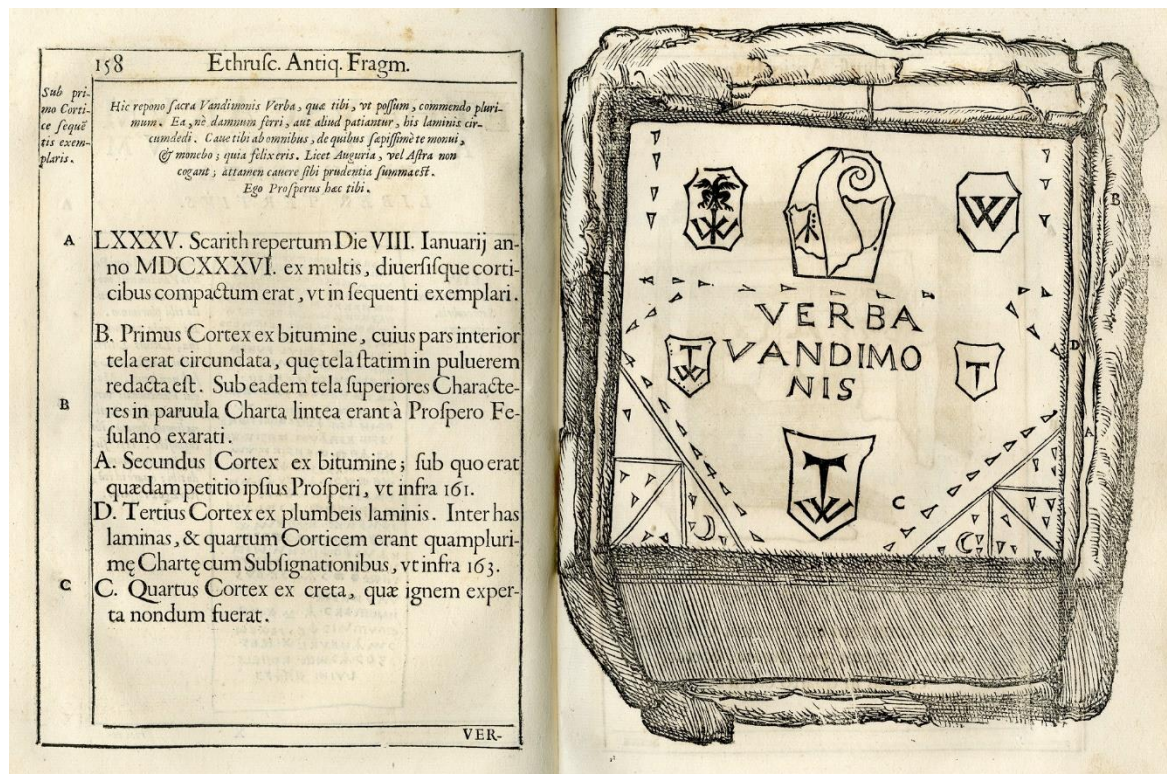 158 Ethrusc. Antiq. Fragm.
Sub pri-
mo Corti-
ce sequē
tis exem-
plaris.
Hic repono sacra Vandimonis Verba, quæ tibi, vt possum, commendo pluri-
mum. Ea, nè damnum ferri, aut aliud patiantur, his laminis cir-
cumdedi. Caue tibi ab omnibus, de quibus sæpissimè te monui,
& monebo; quia felix eris. Licet Auguria, vel Astra non
cogant; attamen cauere sibi prudentia summa est.
Ego Prosperus hæc tibi.
A LXXXV. Scarith repertum Die VIII. Ianuarij an-
no MDCXXXVI. ex multis, diuersisque corti-
cibus compactum erat, vt in sequenti exemplari.
B. Primus Cortex ex bitumine, cuius pars interior
tela erat circundata, quę tela statim in puluerem
redacta est. Sub eadem tela superiores Characte-
B res in paruula Charta lintea erant à Prospero Fe-
sulano exarati.
A. Secundus Cortex ex bitumine; sub quo erat
quædam petitio ipsius Prosperi, vt infra 161.
D. Tertius Cortex ex plumbeis laminis. Inter has
laminas, & quartum Corticem erant quampluri-
mę Chartę cum Subsignationibus, vt infra 163.
C C. Quartus Cortex ex creta, quæ ignem exper-
ta nondum fuerat.
VER-
W
B
VERBA
VANDIMO
NIS
T
W
T
D
A
T
W
C